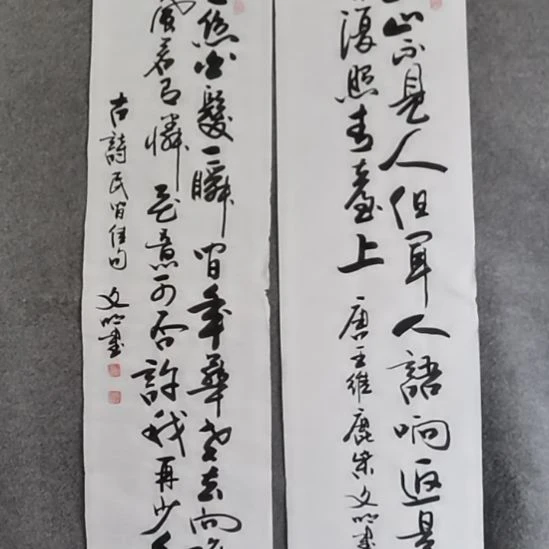 山不見人但聞人語响返景
復照青臺上 唐王維鹿柴 文明書
絲白髮一瞬間年華老去向
風若有憐花意可否許我再少年
古詩民間佳句 文明書